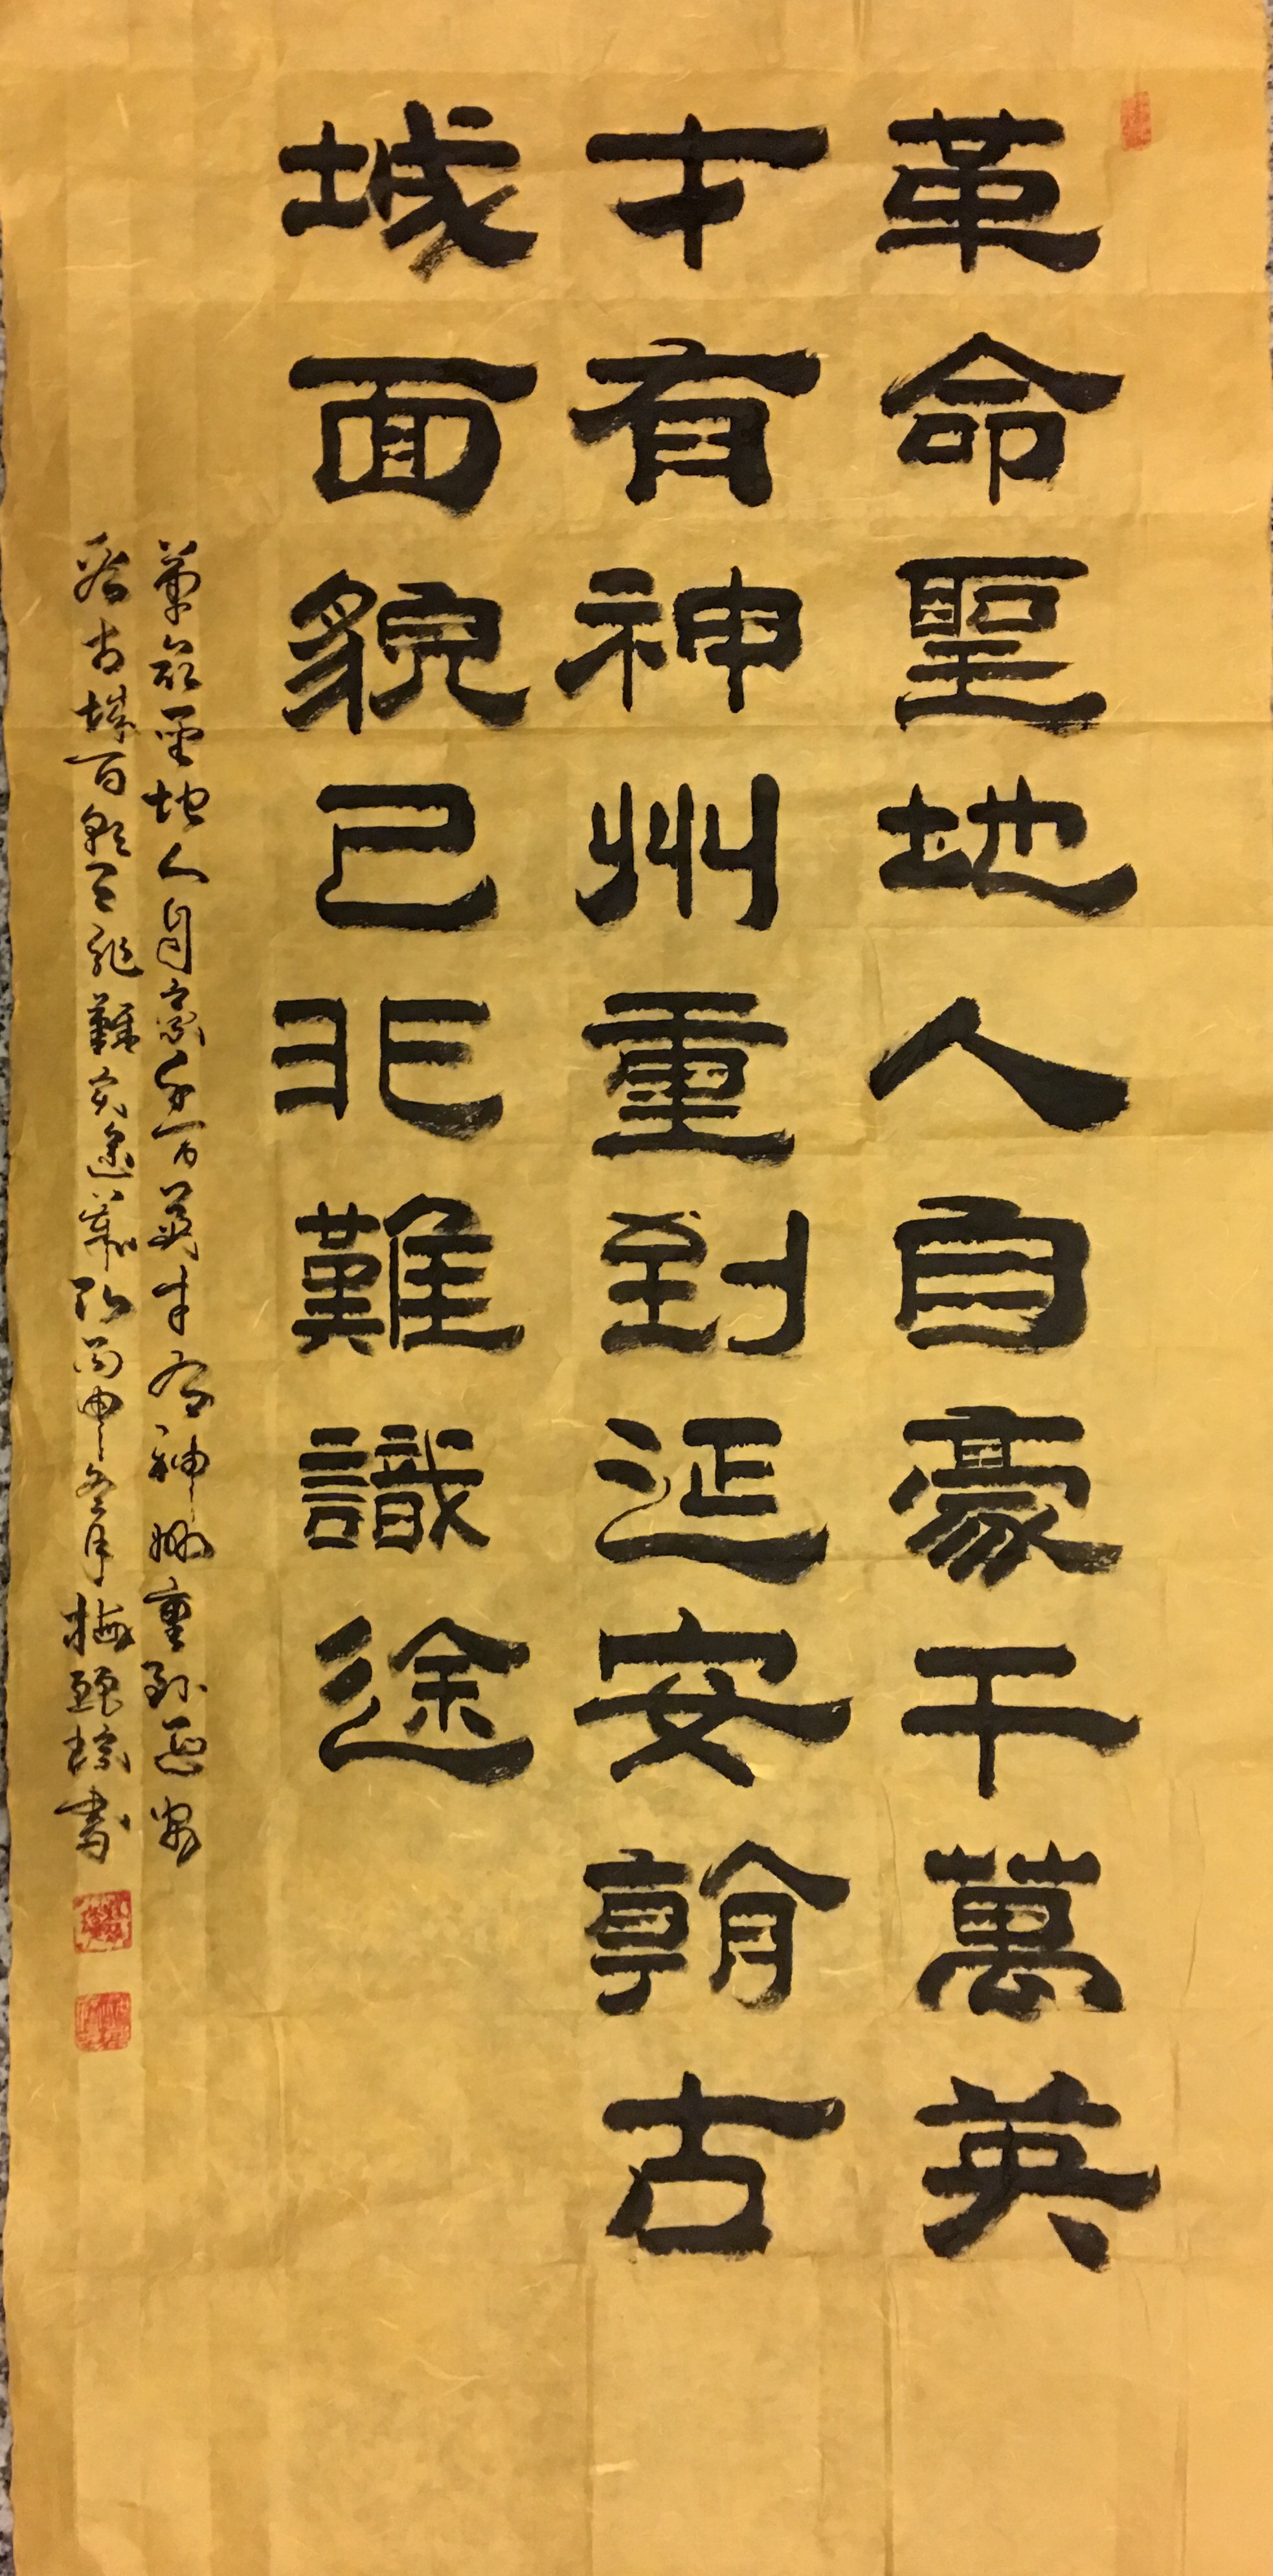 革命聖地人自豪千萬英
才有神州重到延安古
城面貌已非難識途
革命聖地人自豪千万英才有神州重到延安
古城面貌已非難途丙申冬月梅書